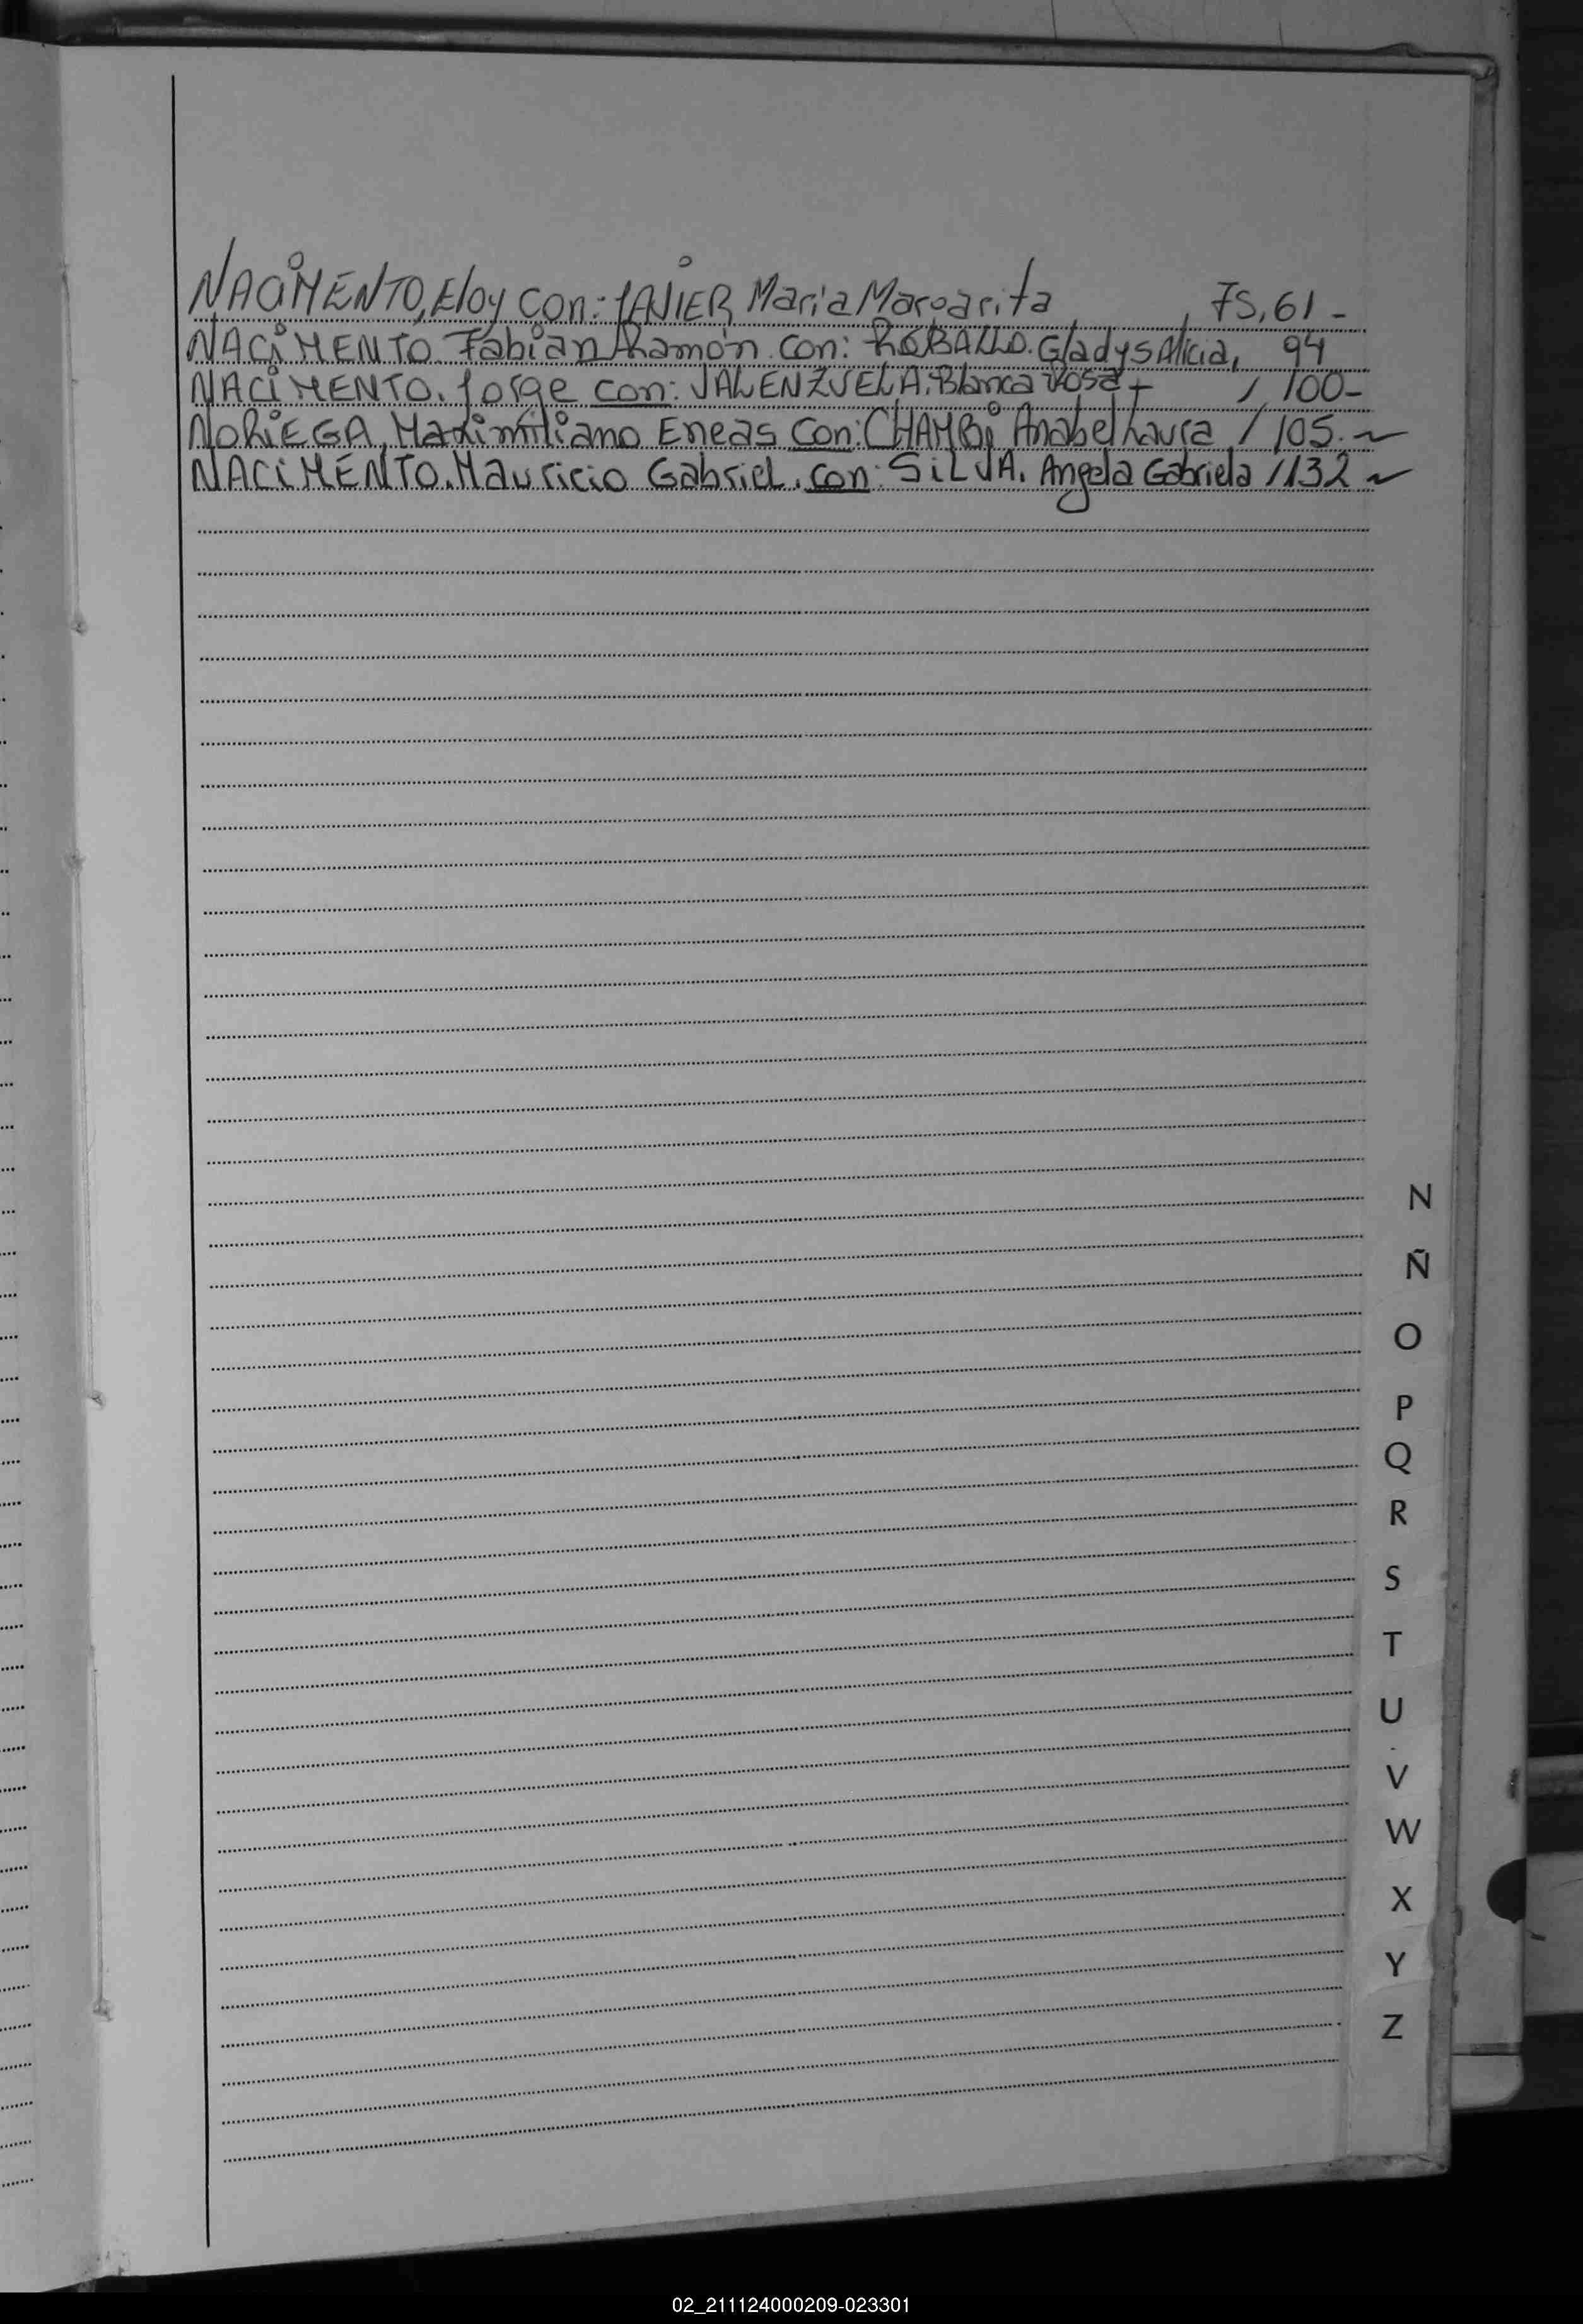 NACIMENTO, Eloy con: JAVIER Maria Margarita, FS, 61 -
NACIMENTO. Fabian Ramón con: ROBALLO. Gladys Alicia, 94
NACIMENTO. Jorge con: VALENZUELA. Blanca Rosa - / 100-
NORIEGA, Maximiliano Eneas con: CHAMBi Anabel Laura / 105. ~
NACIMENTO. Mauricio Gabriel. con: SiLVA. Angela Gabriela / 132 ~
N
Ñ
O
P
Q
R
S
T
U
V
W
X
Y
Z
02_211124000209-023301